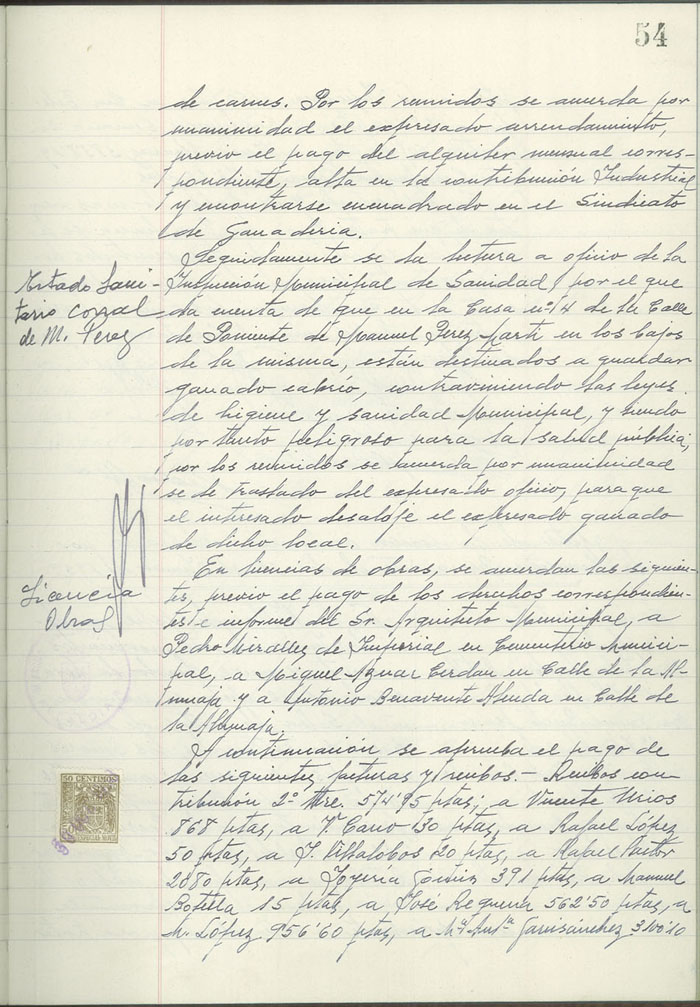 54
de carnes. Por los reunidos se acuerda por
unanimidad el expresado arrendamiento,
previo el pago del alquiler mensual corres-
pondiente, alta en la contribución Industrial
y encontrarse encuadrado en el Sindicato
de Ganadería.
Estado Sani-
tario corral
de M. Perez
Seguidamente se da lectura a oficio de la
Inspección Municipal de Sanidad, por el que
da cuenta de que en la Casa nº 14 de la Calle
de Poniente de Manuel Perez Marti en los bajos
de la misma, están destinados a guardar
ganado cabrío, contraviniendo las leyes
de higiene y sanidad Municipal, y siendo
por tanto peligroso para la salud pública,
por los reunidos se acuerda por unanimidad
se de traslado del expresado oficio, para que
el interesado desaloje el expresado ganado
de dicho local.
Licencia
Obras
En licencias de obras, se acuerdan las siguien-
tes, previo el pago de los derechos correspondien-
tes e informe del Sr. Arquitecto Municipal, a
Pedro Miralles de Imperial en Cementerio Munici-
pal, a Miguel Aznar Cerdan en Calle de la Al-
munaja y a Antonio Benavente en Calle de
la
A continuación se aprueba el pago de
las siguientes facturas y recibos.- Recibos con-
tribución 2º Tre. 574'95 ptas; a Vicente Urios
868 ptas, a Cano 130 ptas, a Rafael López
50 ptas, a J. Villalobos 20 ptas, a Rafael Pastor
2080 ptas, a Joyería 391 ptas, a Manuel
Botella 15 ptas, a José Reguera 562'50 ptas, a
M. López 956'60 ptas, a Mª Antª Garrisánchez 3100'10
50 CENTIMOS